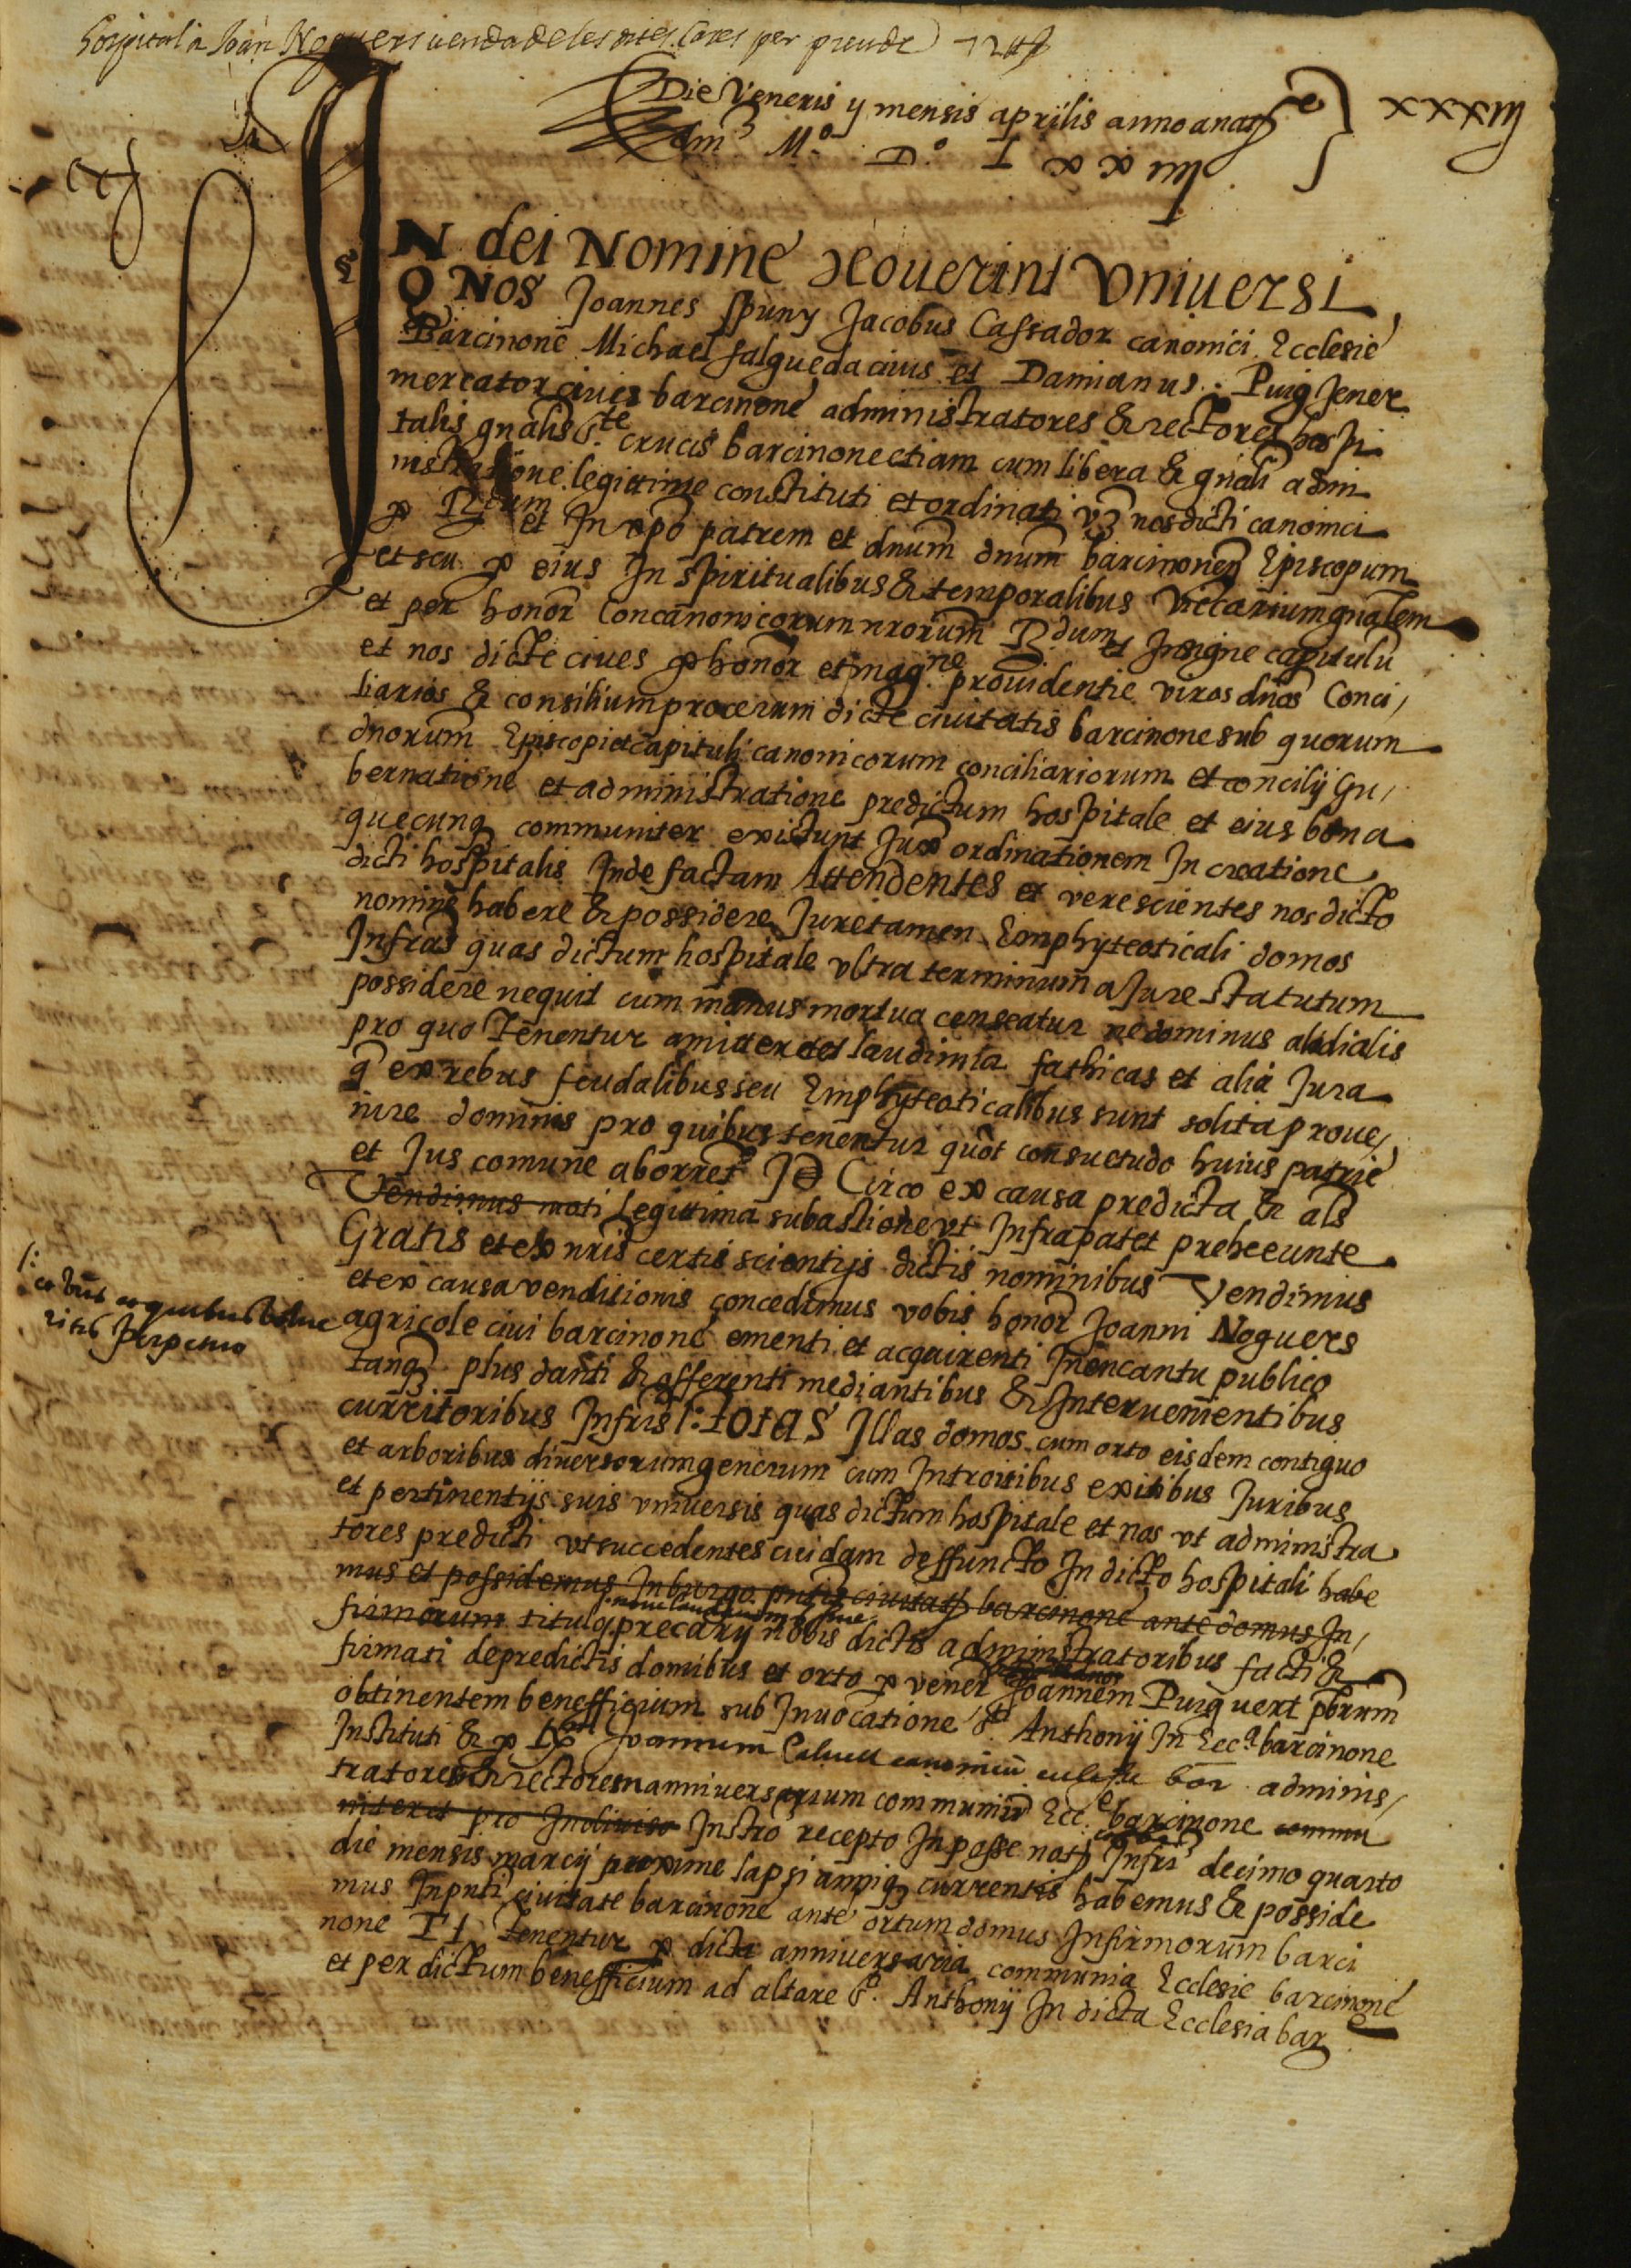 hospital a Joan Noguers venda de les dites Cases per preu de
Die Veneris ij mensis aprilis anno a nate
dmi Mº Dº L x x iiij
xxxxiij
IN dei Nomine Noverint Universi
Q Nos Joannes spuny Jacobus Cassador canonici Ecclesie
Barcinone Michael salgueda civis et Damianus Puig Jener
mercator cives barcinone administratores & rectores hospi
talis gnalis Ste crucis barcinone etiam cum libera & gnali admi
nistratione legittime constituti et ordinati vz nos dicti canonici
p Rdum et In xpo patrem et dnum dnum barcinonen Episcopum
et seu p eius In spiritualibus & temporalibus Viccarium gnalem
et per honor Concanonicorum nrorum Rdum et Insigne capitulu
et nos dicte cives p honor et magne providentie viros dnos Conci/
liarios & consilium procerum dicte civitatis barcinone sub quorum
dnorum Episcopi et capituli canonicorum conciliariorum et concilij Gu/
bernatione et administratione predictum hospitale et eius bona
quecunq communiter existunt Juxa ordinationem In creatione
dicti hospitalis Inde factam Attendentes et vere scientes nos dicto
nomine habere & possidere Jure tamen Emphyteoticali domos
Infras quas dictum hospitale ultra terminum a Jure statutum
possidere nequit cum manus mortua censeatur ne dominus alodialis
pro quo Tenentur amitteret laudimia fathicas et alia Jura
q ex rebus feudalibus seu Emphyteoticalibus sunt solita prove/
nire dominis pro quibus tenentur quot consuetudo huius patrie
et Jus comune aborret Id Circo ex causa predicta & als
Vendimus mati Legittima subastione ut Infra patet preheeunte
Gratis et ex nris certis scientijs dictis nominibus Vendimus
et ex causa venditionis concedimus vobis honor Joanni Noguers
agricole civi barcinone ementi et acquirenti In encantu publico
/: et bus et quibus volue
ritis Perpetuo
tanq plus danti & offerenti mediantibus & Intervenientibus
curritoribus Infris /: totas Illas domos cum orto eisdem contiguo
et arboribus diversorum generum cum Introitibus exitibus Juribus
et pertinentijs suis universis quas dictum hospitale et nos ut administra
tores predicti ut succedentes cuidam deffuncto In dicto hospitali habe
mus et possidemus In burgo pntis civitatis barcinone ante domus In/
firmorum titulo precarij nobis dictis administratoribus facti &
firmati de predictis domibus et orto p vener Joannem Puigvert pbrum
obtinentem benefficium sub Invocatione St Anthonij In Ecca barcinone
Instituti & p Joannem canonicu barc adminis/
tratores & rectores anniversarium communiu Ecc barcinone commu
niter et pro Indiviso Instro recepto In posse not Infri decimo quarto
die mensis marcij proxime lapsi anniq currentis habemus & posside
mus In pnti civitate barcinone ante ortum domus Infirmorum barci
none Et tenentur p dicta anniversaria communia Ecclesie barcinone
et per dictum benefficium ad altare St Anthonij In dicta Ecclesia bar